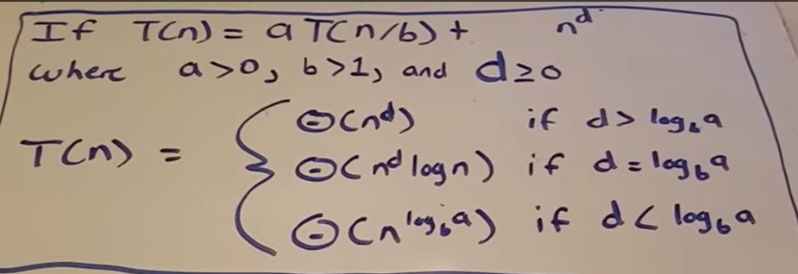 If T(n) = a T(n/b) + n^d
where a>0, b>1, and d≥0
T(n) = { Θ(n^d) if d > log_b a
Θ(n^d log n) if d = log_b a
Θ(n^(log_b a)) if d < log_b a